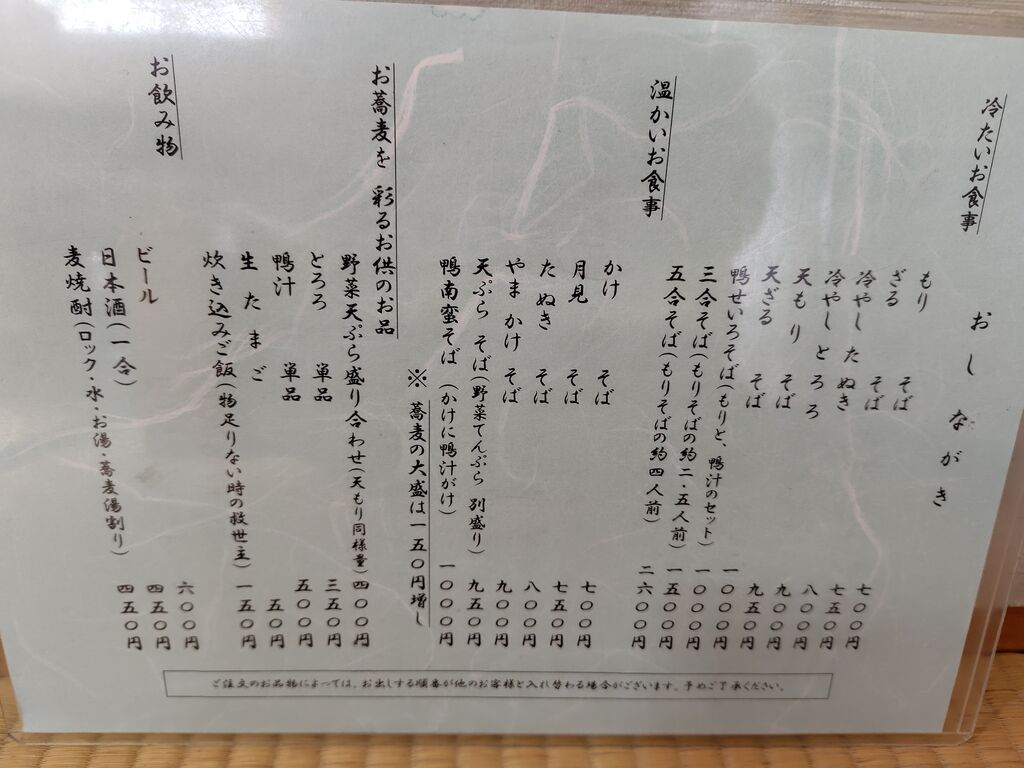 おしながき
冷たいお食事
もり そば 七〇〇円
ざる そば 七五〇円
冷やし たぬき 八〇〇円
冷やし とろろ 九〇〇円
天もり そば 九五〇円
天ざる そば 一〇〇〇円
鴨せいろそば(もりと、鴨汁のセット) 一〇〇〇円
三合そば(もりそばの約二・五人前) 一五〇〇円
五合そば(もりそばの約四人前) 二六〇〇円
温かいお食事
かけ そば 七〇〇円
月見 そば 七五〇円
たぬき そば 八〇〇円
やまかけ そば 九〇〇円
天ぷら そば(野菜てんぷら 別盛り) 九五〇円
鴨南蛮そば (かけに鴨汁がけ) 一〇〇〇円
※ 蕎麦の大盛は一五〇円増し
お蕎麦を 彩るお供のお品
野菜天ぷら盛り合わせ(天もり同様量) 四〇〇円
とろろ 単品 三五〇円
鴨汁 単品 五〇〇円
生たまご 五〇円
炊き込みご飯(物足りない時の救世主) 一五〇円
お飲み物
ビール 六〇〇円
日本酒(一合) 四五〇円
麦焼酎(ロック・水・お湯・蕎麦湯割り) 四五〇円
ご注文のお品物によっては、お出しする順番が他のお客様と入れ替わる場合がございます。予めご了承ください。